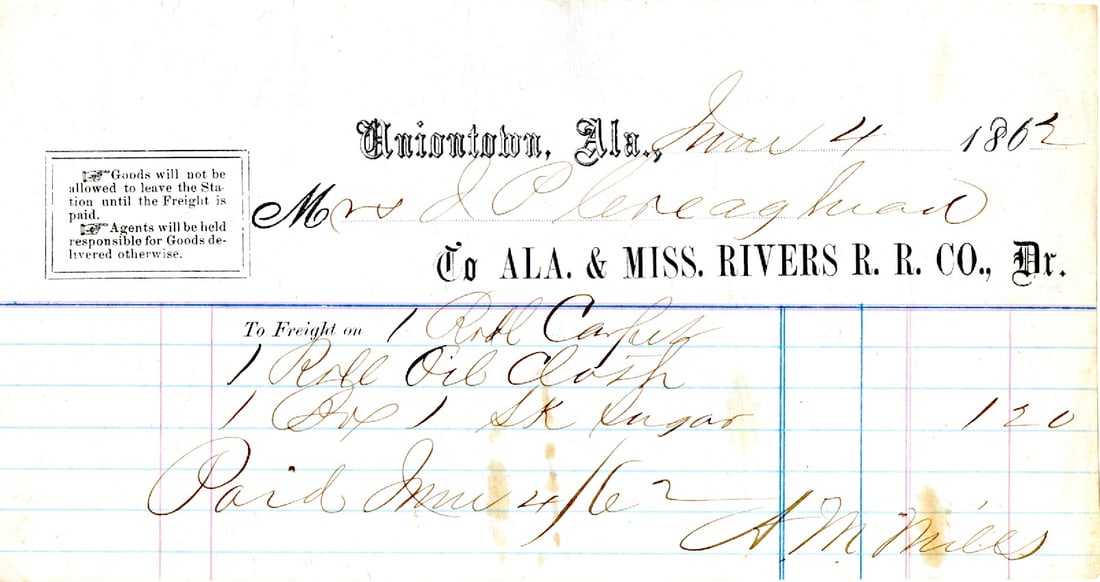 Uniontown, Ala., June 4 1862
☞Goods will not be
allowed to leave the Sta-
tion until the Freight is
paid.
☞Agents will be held
responsible for Goods de-
livered otherwise.
Mrs J P Creaghead
To ALA. & MISS. RIVERS R. R. CO., Dr.
To Freight on 1 Roll Carpet
1 Roll Oil Cloth
1 Box 1 Sk Sugar 1 20
Paid June 4/62
A M Mills